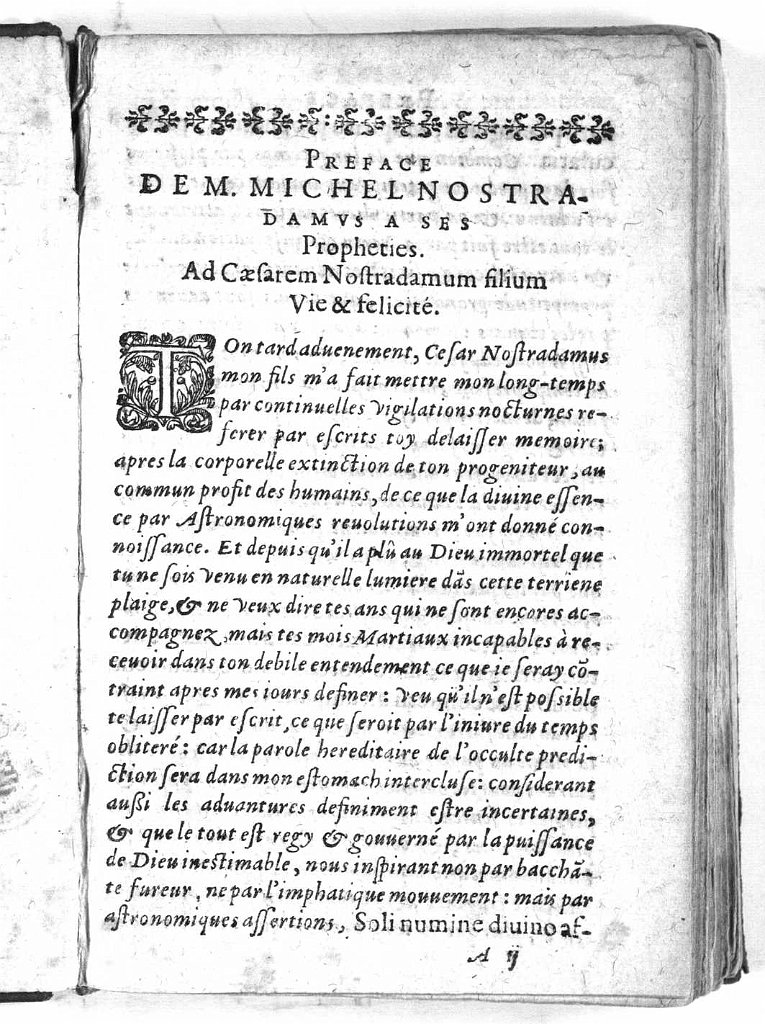 PREFACE
DE M. MICHEL NOSTRA-
DAMVS A SES
Propheties.
Ad Cæſarem Noſtradamum filium
Vie & felicité.
TOn tard aduenement, Ceſar Noſtradamus
mon fils m'a fait mettre mon long-temps
par continuelles vigilations nocturnes re-
ferer par eſcrits toy delaiſſer memoire,
apres la corporelle extinction de ton progeniteur, au
commun profit des humains, de ce que la diuine eſſen-
ce par Aſtronomiques reuolutions m'ont donné con-
noiſſance. Et depuis qu'il a plû au Dieu immortel que
tu ne ſois venu en naturelle lumiere dãs cette terriene
plaige, & ne veux dire tes ans qui ne ſont encores ac-
compagnez, mais tes mois Martiaux incapables à re-
ceuoir dans ton debile entendement ce que ie ſeray cõ-
traint apres mes iours definer : veu qu'il n'eſt poſſible
te laiſſer par eſcrit, ce que ſeroit par l'iniure du temps
obliteré : car la parole hereditaire de l'occulte predi-
ction ſera dans mon eſtomach intercluſe : conſiderant
außi les aduantures definiment eſtre incertaines,
& que le tout eſt regy & gouuerné par la puiſſance
de Dieu ineſtimable, nous inſpirant non par bacchã-
te fureur, ne par l'imphatique mouuement : mais par
aſtronomiques aſſertions, Soli numine diuino af-
A ij